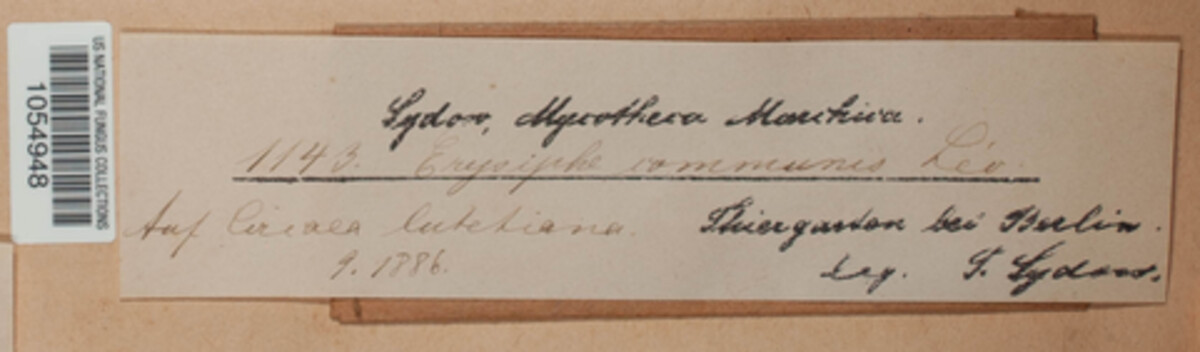 US NATIONAL FUNGUS COLLECTIONS
1054948
Sydow, Mycotheca Marchica.
1143. Erysiphe communis Lév.
Auf Circaea lutetiana.
9. 1886.
Thiergarten bei Berlin.
Leg. P. Sydow.